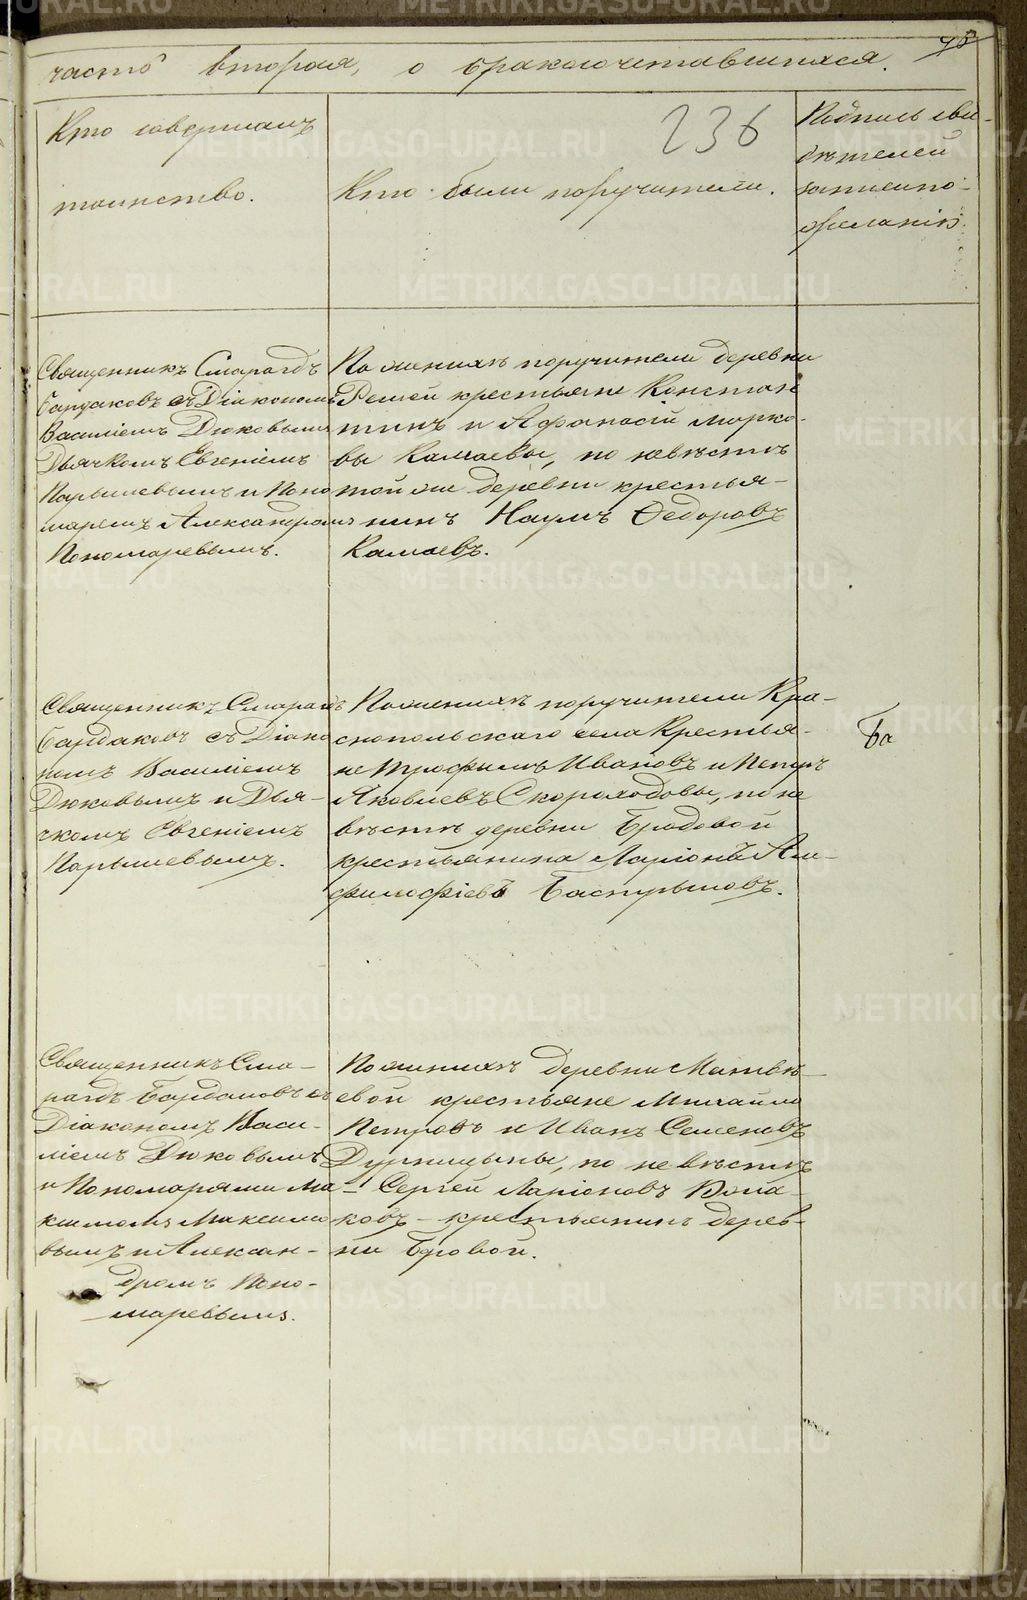 75
часть вторая, о бракосочетавшихся.
Кто совершалъ
таинство.
236
Кто были поручители.
Подпись сви-
дѣтелей
записи по-
желанію.
Священникъ Смарагдъ
Бардаковъ съ Діакономъ
Василіемъ Дюковымъ
Дьячкомъ Евгеніемъ
Парышевымъ и Поно
маремъ Александромъ
Пономаревымъ.
По женихѣ поручители деревни
крестьяне Констан
тинъ и Афанасій Марко-
вы Камаевы, по невѣстѣ
той же деревни крестья-
нинъ Наумъ Ѳедоровъ
Камаевъ.
Священникъ Смарагдъ
Бардаковъ съ Діако
номъ Василіемъ
Дюковымъ и Дья-
чкомъ Евгеніемъ
Парышевымъ.
По женихѣ поручители Кра-
снопольскаго села Крестья-
не Трофимъ Ивановъ и Петръ
Яковлевъ Скороходовы, по не
вѣстѣ деревни Бродовой
крестьянина Ларіонъ Ам-
филофіевъ Бастрыковъ.
Ба
Священникъ Сма-
рагдъ Бардаковъ съ
Діакономъ Васи-
ліемъ Дюковымъ
и Пономарями Ма
ксимомъ Максимо
вымъ и Алексан-
дромъ Поно-
маревымъ.
По женихѣ деревни Матвѣ-
евой крестьяне Михайло
Петровъ и Иванъ Семеновъ
Дурницыны, по невѣстѣ
- Сергей Ларіоновъ
ковъ - крестьянинъ дерев-
ни
METRIKI.GASO-URAL.RU